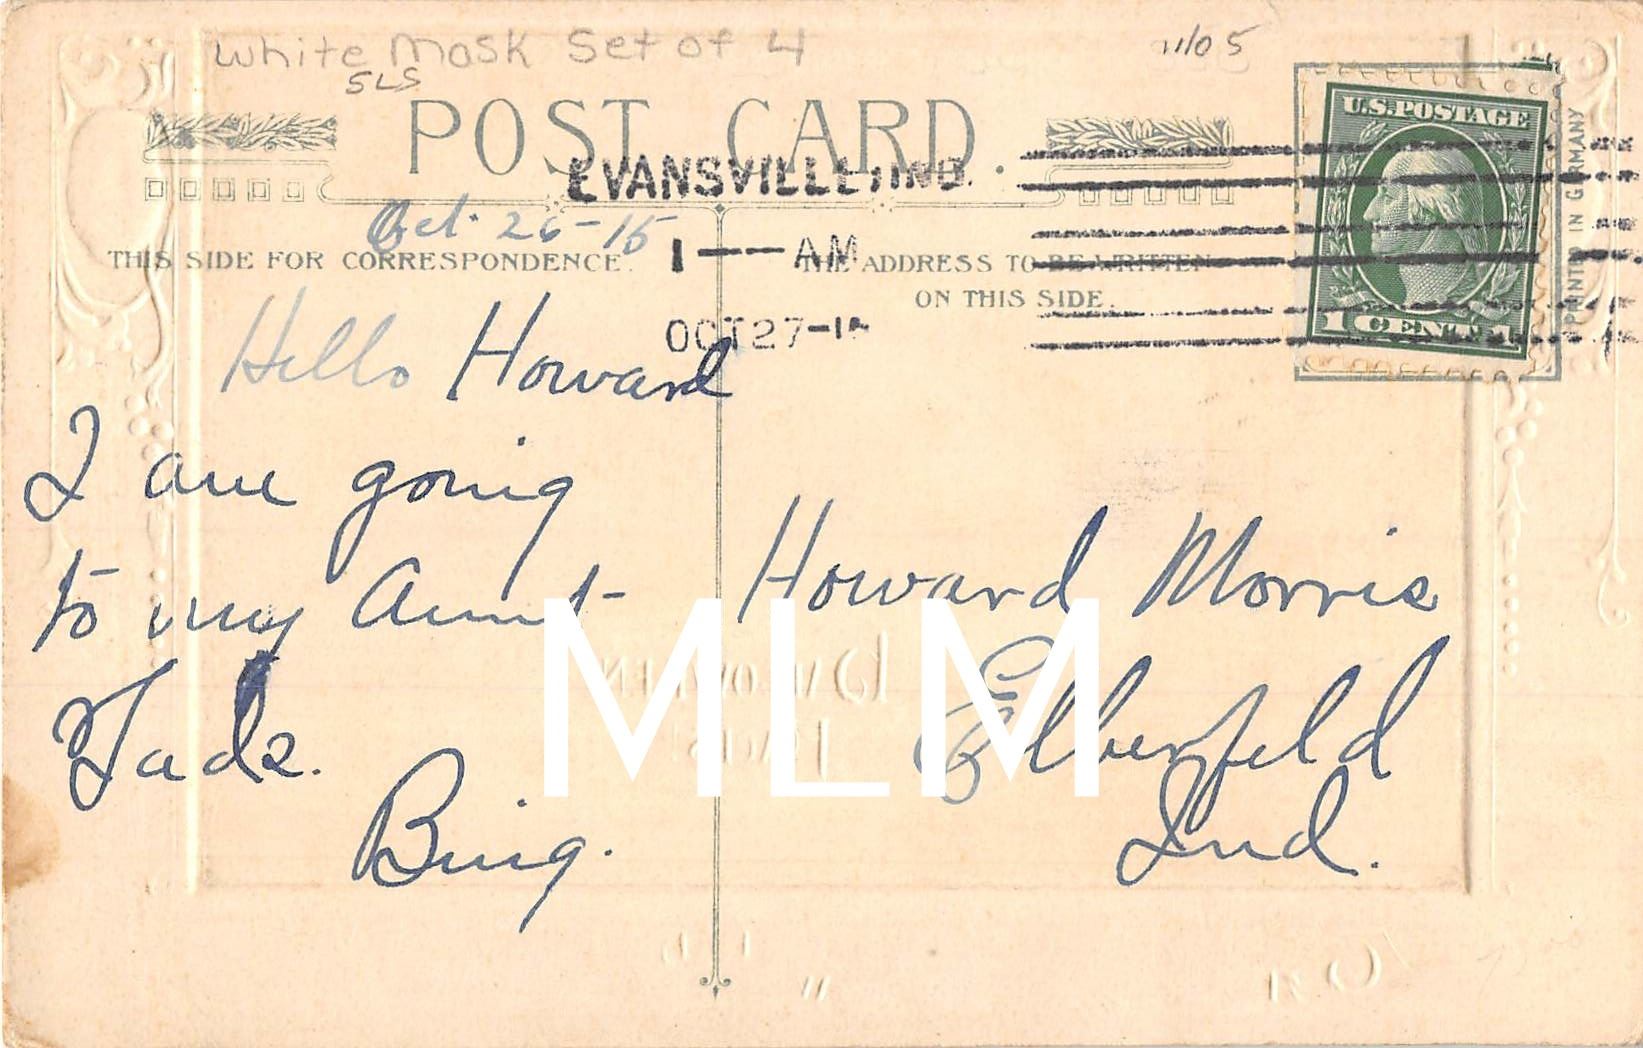 White Mask Set of 4
1105
SLS
POST CARD.
U.S. POSTAGE
EVANSVILLE, IND.
PRINTED IN GERMANY
Oct. 26-15
THIS SIDE FOR CORRESPONDENCE.
1 — AM
THE ADDRESS TO BE WRITTEN
ON THIS SIDE.
OCT 27-15
1 CENT 1
Hello Howard
I am going
to my Aunt
Bing.
Howard Morris
Elberfeld
Ind.
MLM